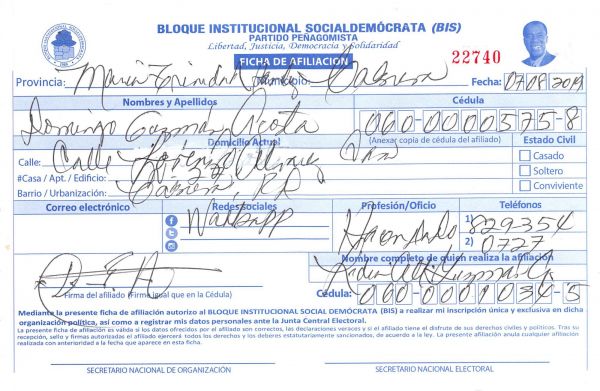 BLOQUE INSTITUCIONAL SOCIALDEMÓCRATA (BIS)
PARTIDO PEÑAGOMISTA
Libertad, Justicia, Democracia y Solidaridad
FICHA DE AFILIACIÓN
22740
Provincia: María Trinidad Municipio: Cabrera Fecha: 07/08/2019
Nombres y Apellidos Cédula
Domingo Guzmán Acosta 060-0000575-8
Domicilio Actual (Anexar copia de cédula del afiliado) Estado Civil
Calle: Calle Lorenzo
#Casa / Apt. / Edificio:
Barrio / Urbanización: Cabrera, RD
Casado
Soltero
Conviviente
Correo electrónico Redes Sociales Profesión/Oficio Teléfonos
1) 829 354
2) 0727
Nombre completo de quien realiza la afiliación
Guzmán
Firma del afiliado (Firme igual que en la Cédula)
Cédula: 060-0001034-5
Mediante la presente ficha de afiliación autorizo al BLOQUE INSTITUCIONAL SOCIAL DEMÓCRATA (BIS) a realizar mi inscripción única y exclusiva en dicha
organización política, así como a registrar mis datos personales ante la Junta Central Electoral.
La presente ficha de afiliación es válida si los datos ofrecidos por el afiliado son correctos, las declaraciones veraces y si el afiliado tiene el disfrute de sus derechos civiles y políticos. Tras su
recepción, sello y firmas autorizadas el afiliado ejercerá todos los derechos y los deberes estatutariamente sancionados, de acuerdo a la ley. La presente afiliación anula cualquier afiliación
realizada con anterioridad a la fecha que aparece en esta ficha.
SECRETARIO NACIONAL DE ORGANIZACIÓN SECRETARIO NACIONAL ELECTORAL